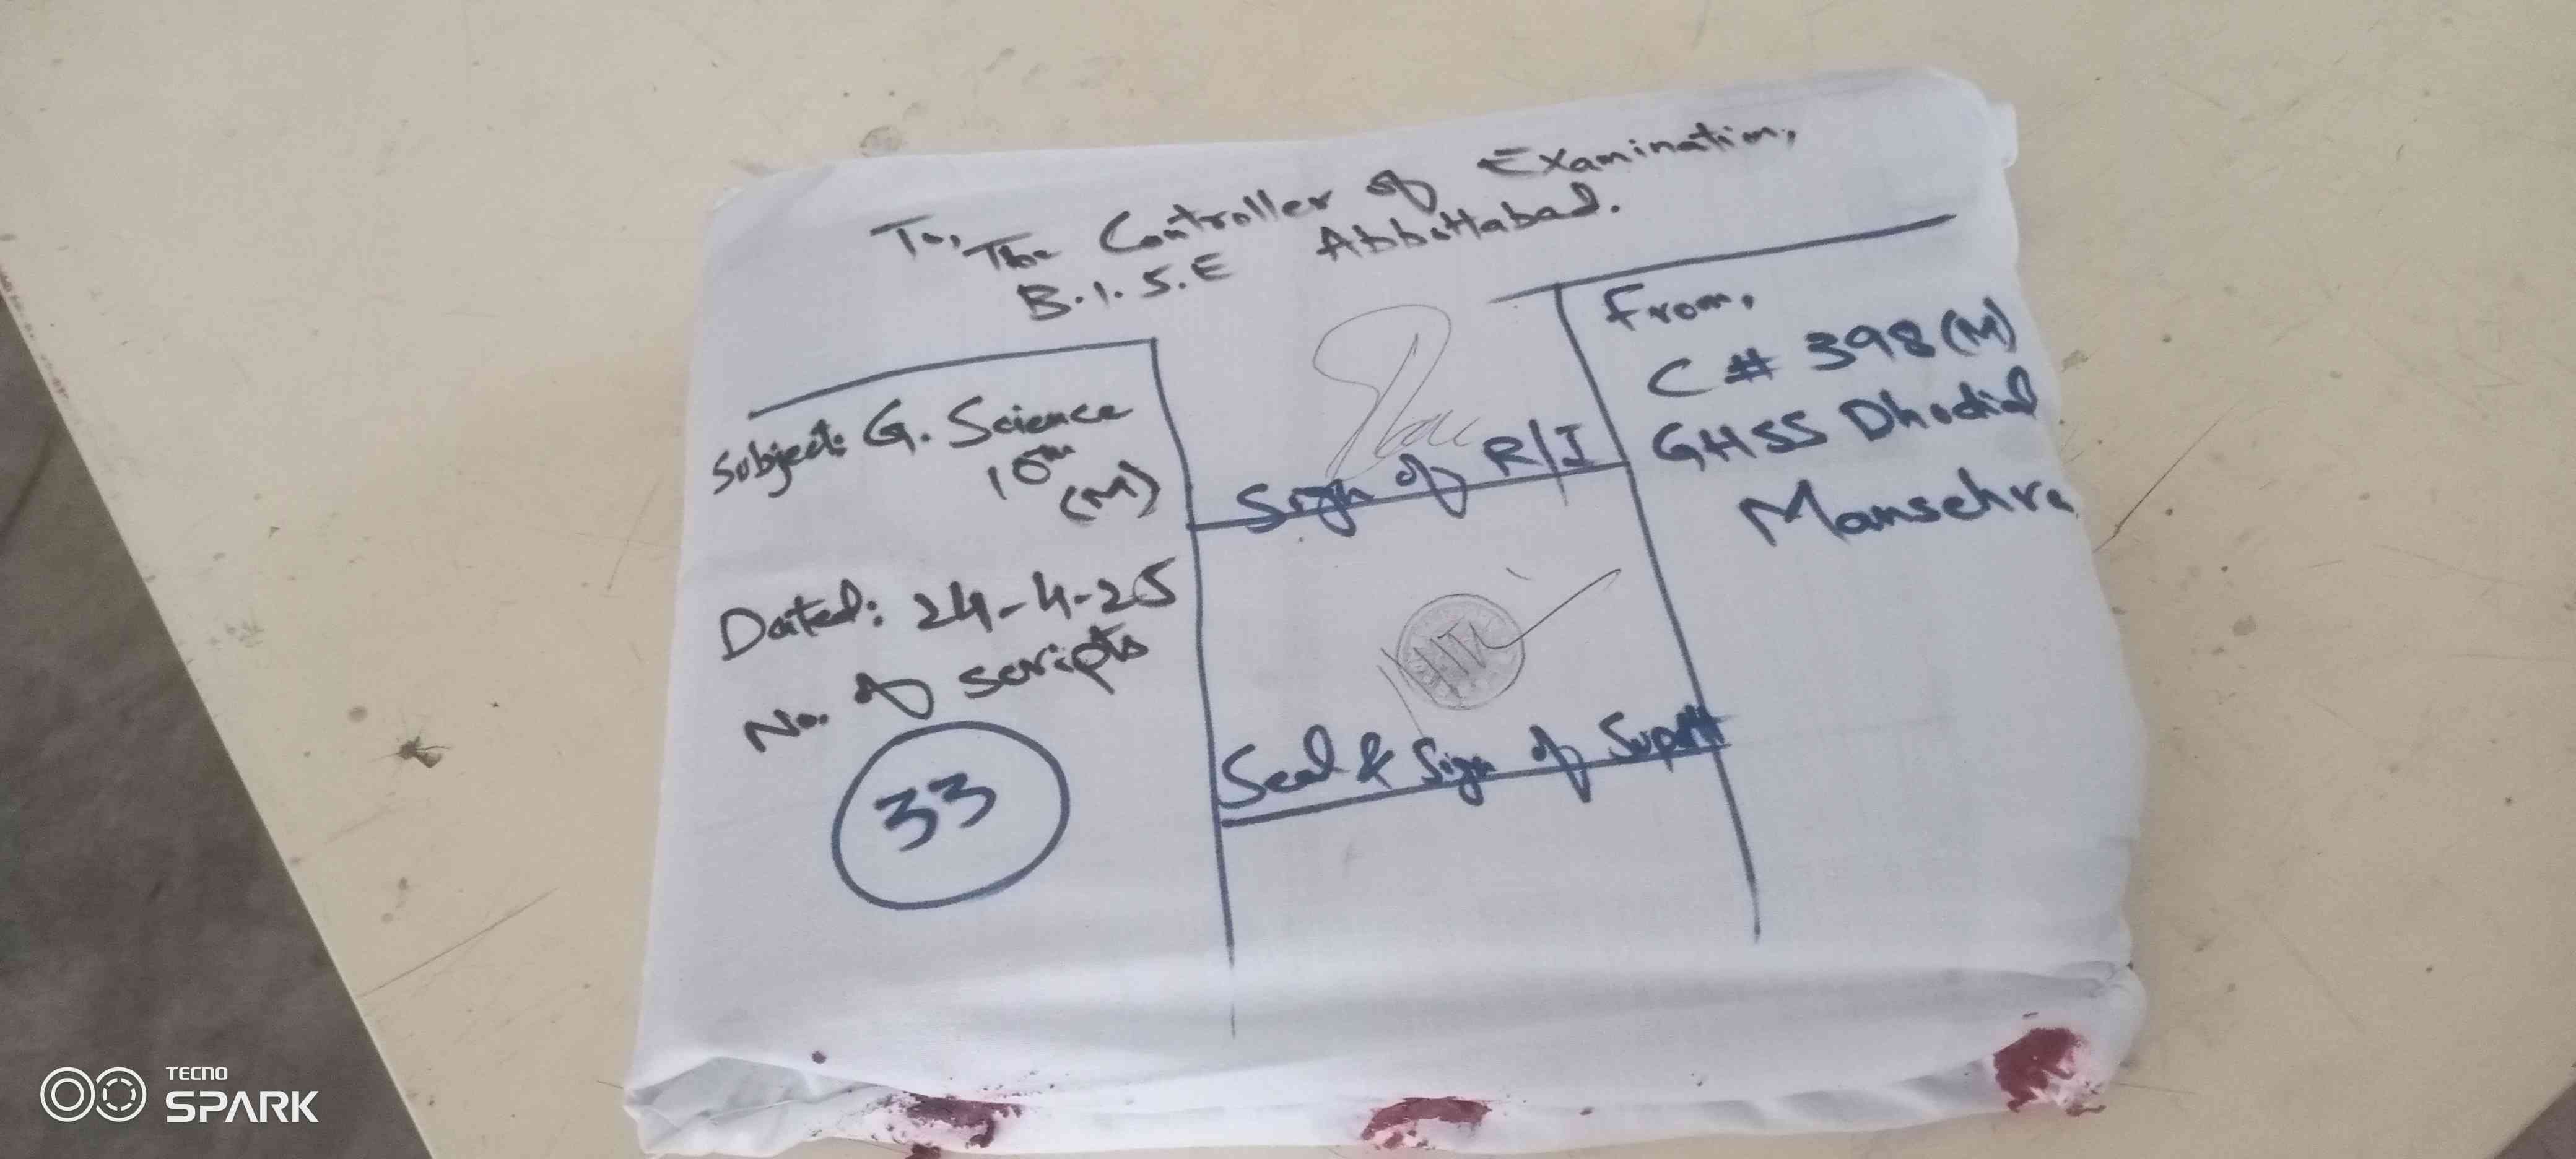 To, The Controller of Examination,
B.I.S.E Abbottabad.
Subject: G. Science
10th
(M)
Dated: 24-4-25
No. of scripts
33
Sign of R/I
Seal & Sign of Supdtt
From,
C # 398 (M)
GHSS Dhodial
Mansehra
TECNO
SPARK